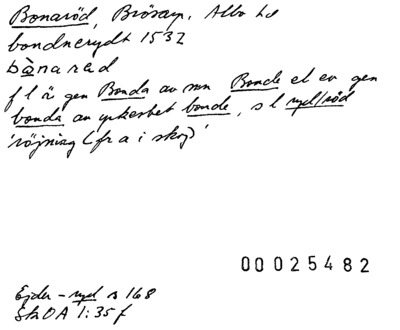 Bonaröd, Brösarp, Albo hd
bondnerydt 1532
bànarəd
f l ä gen Bonda av mn Bonde el ev gen
bonda av yrkesbet bonde, s l ryd/röd
'röjning (fr a i skog)'
00025482
Ejder - ryd s 168
SkOA 1:35 f